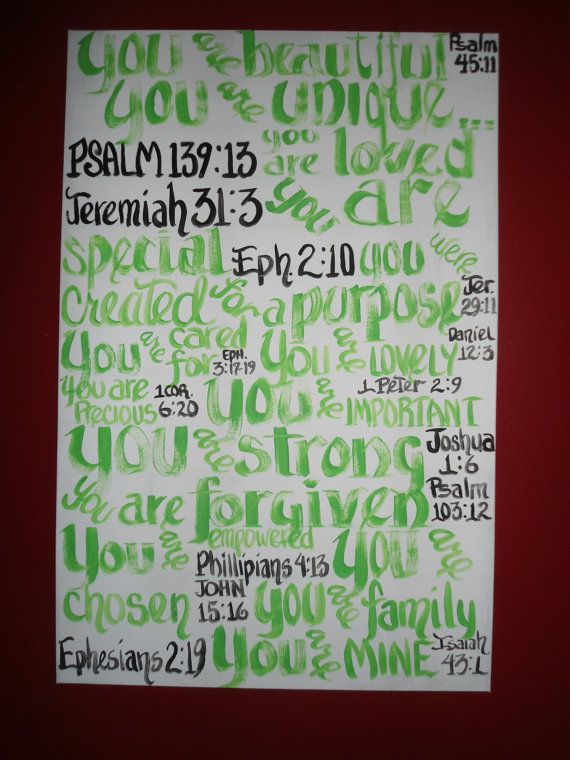 you are beautiful Psalm 45:11
you are unique...
PSALM 139:13 you are loved
Jeremiah 31:3 you are
special Eph 2:10 you were
created for a purpose Jer. 29:11
you are cared for EPH. 3:17-19 you are LOVELY Daniel 12:3
you are Precious 1 COR. 6:20 you are IMPORTANT 1 Peter 2:9
you are strong Joshua 1:6
you are forgiven Psalm 103:12
you are empowered Phillipians 4:13 you are
chosen JOHN 15:16 you are family
Ephesians 2:19 you are MINE Isaiah 43:1